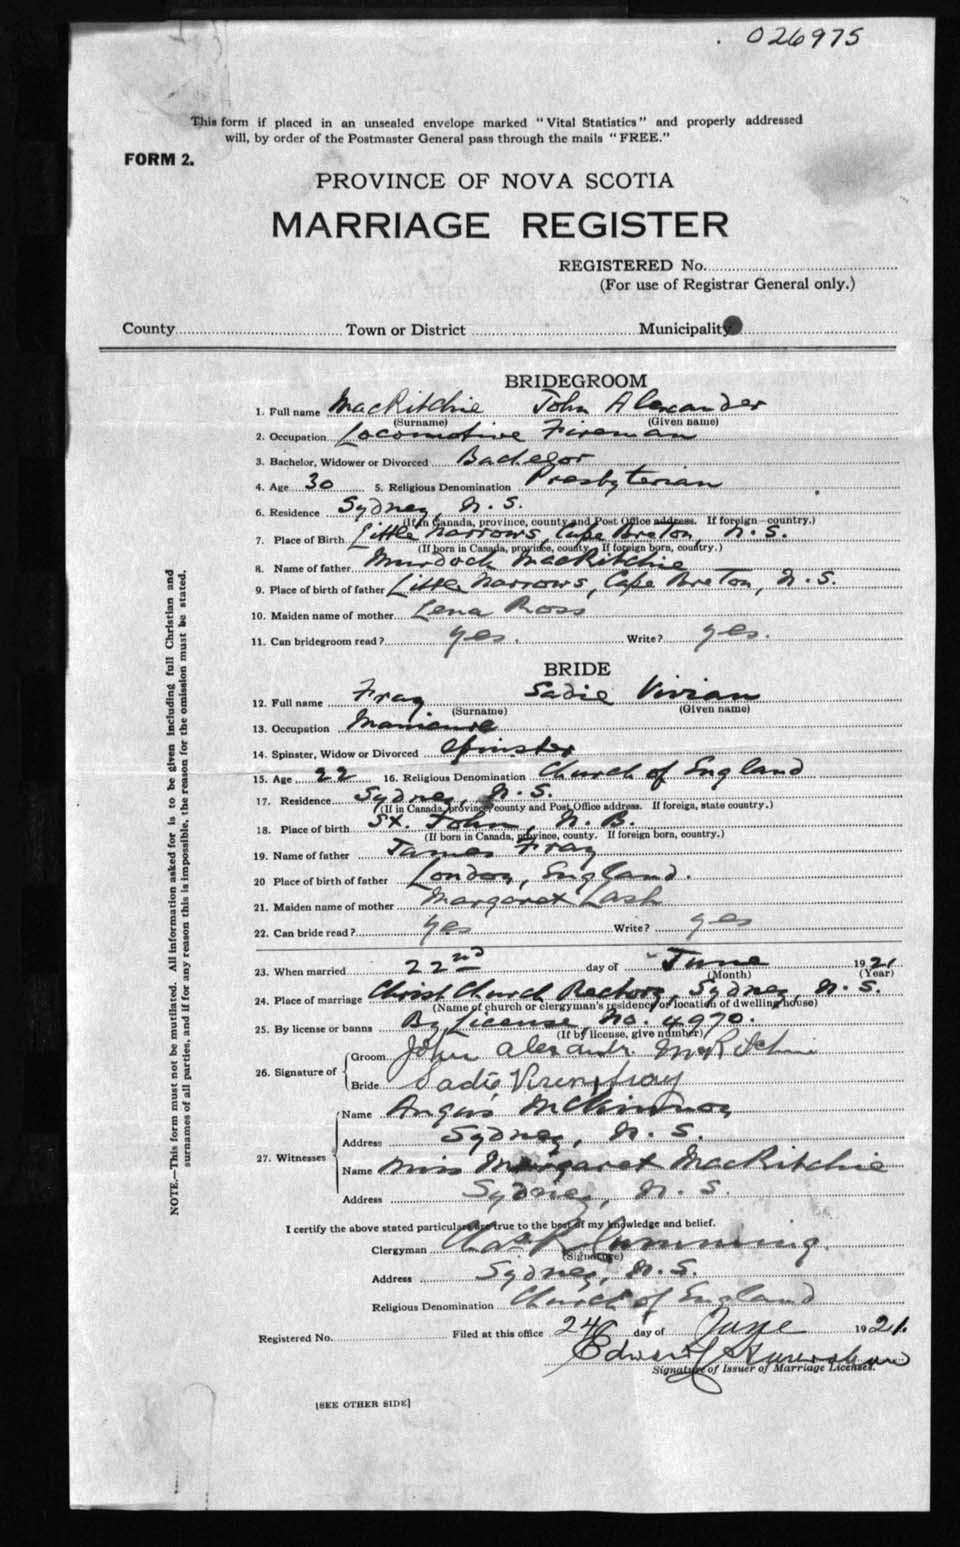 026975
This form if placed in an unsealed envelope marked "Vital Statistics" and properly addressed
will, by order of the Postmaster General pass through the mails "FREE."
FORM 2.
PROVINCE OF NOVA SCOTIA
MARRIAGE REGISTER
REGISTERED No.
(For use of Registrar General only.)
County Town or District Municipality
BRIDEGROOM
1. Full name MacRitchie John Alexander
(Surname) (Given name)
2. Occupation Locomotive Fireman
3. Bachelor, Widower or Divorced Bachelor
4. Age 30 5. Religious Denomination Presbyterian
6. Residence Sydney, N.S.
(If in Canada, province, county and Post Office address. If foreign—country.)
7. Place of Birth Little Narrows, Cape Breton, N.S.
(If born in Canada, province, county. If foreign born, country.)
8. Name of father Murdoch MacRitchie
9. Place of birth of father Little Narrows, Cape Breton, N.S.
10. Maiden name of mother Lena Ross
11. Can bridegroom read? yes. Write? yes.
BRIDE
12. Full name Fray Sadie Vivian
(Surname) (Given name)
13. Occupation Manicure
14. Spinster, Widow or Divorced Spinster
15. Age 22 16. Religious Denomination Church of England
17. Residence Sydney, N.S.
(If in Canada, province, county and Post Office address. If foreign, state country.)
18. Place of birth St. John, N.B.
(If born in Canada, province, county. If foreign born, country.)
19. Name of father James Fray
20 Place of birth of father London, England.
21. Maiden name of mother Margaret Lash
22. Can bride read? yes Write? yes
23. When married 22nd day of June 1921
(Month) (Year)
24. Place of marriage Christ Church Rectory, Sydney, N.S.
(Name of church or clergyman's residence or location of dwelling house)
25. By license or banns By License, No. 4970.
(If by license, give number)
26. Signature of Groom John Alexandr. McRitchie
Bride Sadie Fray
27. Witnesses Name Angus McKinnon
Address Sydney, N.S.
Name Miss Margaret MacRitchie
Address Sydney, N.S.
I certify the above stated particulars are true to the best of my knowledge and belief.
Clergyman Cumming
(Signature)
Address Sydney, N.S.
Religious Denomination Church of England
Registered No. Filed at this office 24 day of June 1921.
Edward
Signature of Issuer of Marriage Licenses.
[SEE OTHER SIDE]
NOTE.—This form must not be mutilated. All information asked for is to be given including full Christian and
surnames of all parties, and if for any reason this is impossible, the reason for the omission must be stated.